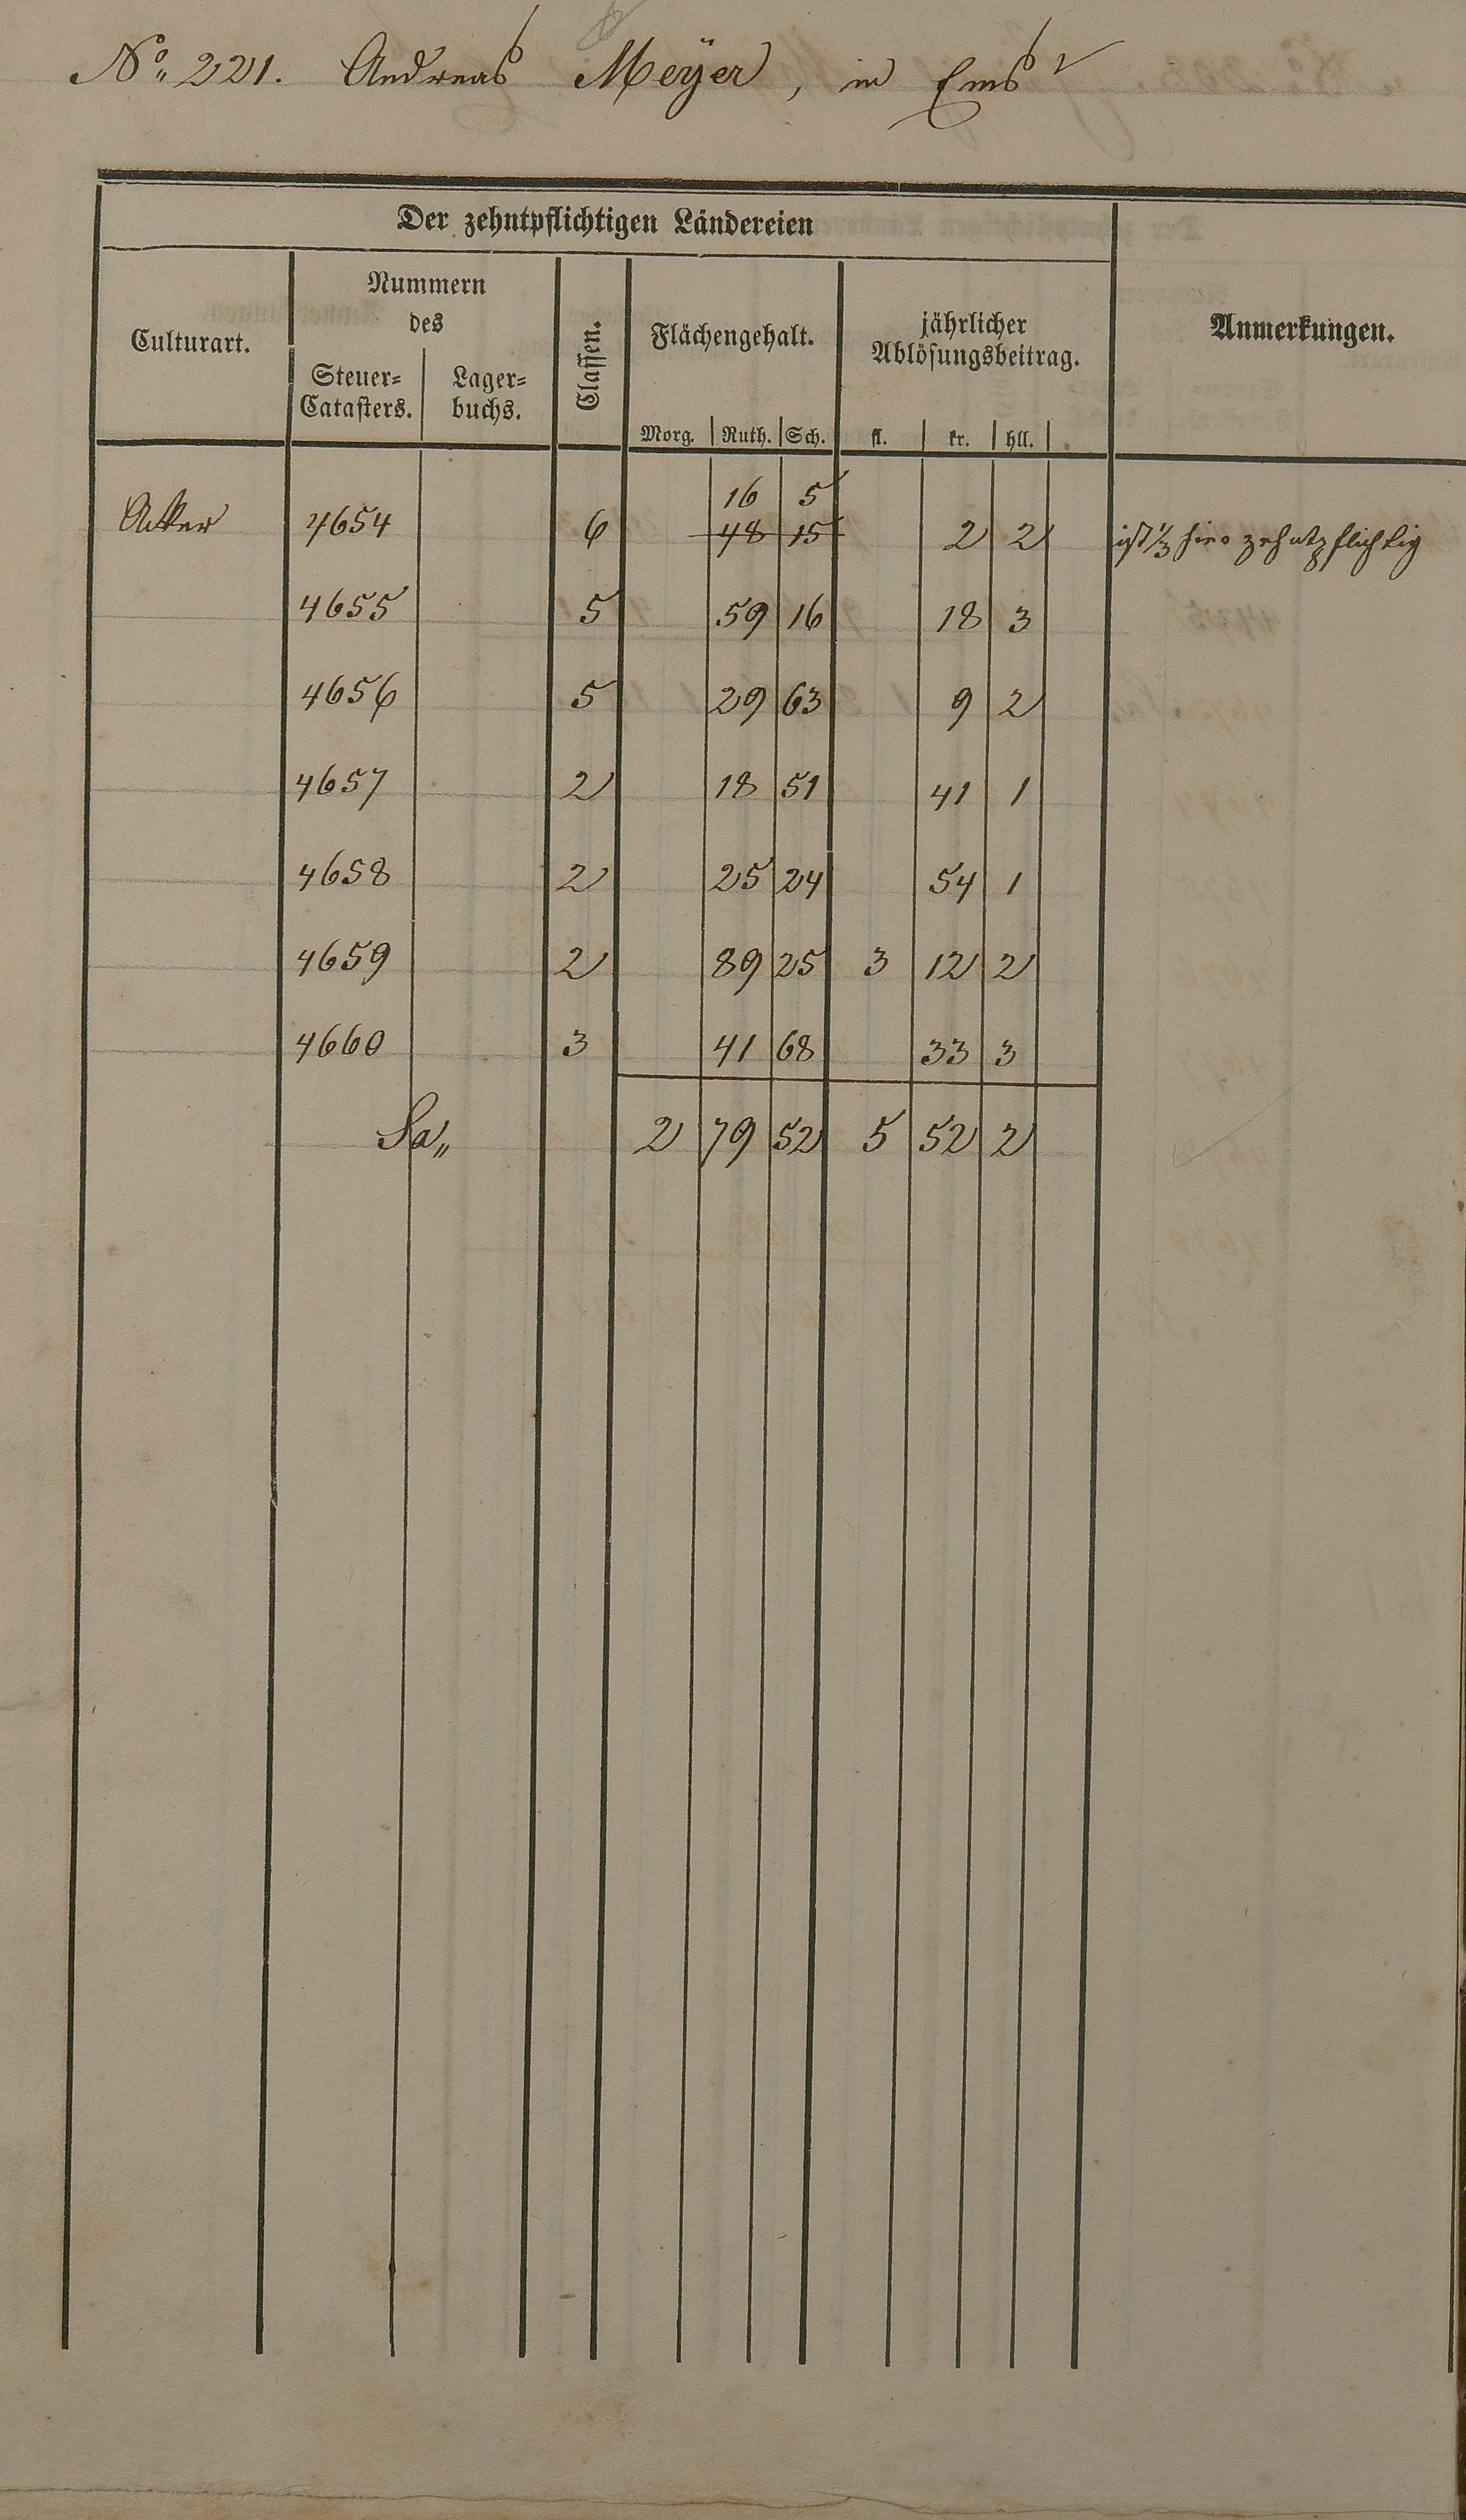 No. 221. Andreas Meÿer, in Ems
Der zehntpflichtigen Ländereien
Culturart.
Nummern
des
Steuer=
Catasters.
Lager=
buchs.
Classen.
Flächengehalt.
Morg. Ruth. Sch.
jährlicher
Ablösungsbeitrag.
fl. kr. hll.
Anmerkungen.
16 5
Acker 4654 6 48 15 2 2 ist 1/3 hier zehntpflichtig
4655 5 59 16 18 3
4656 5 29 63 9 2
4657 2 18 51 41 1
4658 2 25 24 54 1
4659 2 89 25 3 12 2
4660 3 41 68 33 3
Sa„ 2 79 52 5 52 2